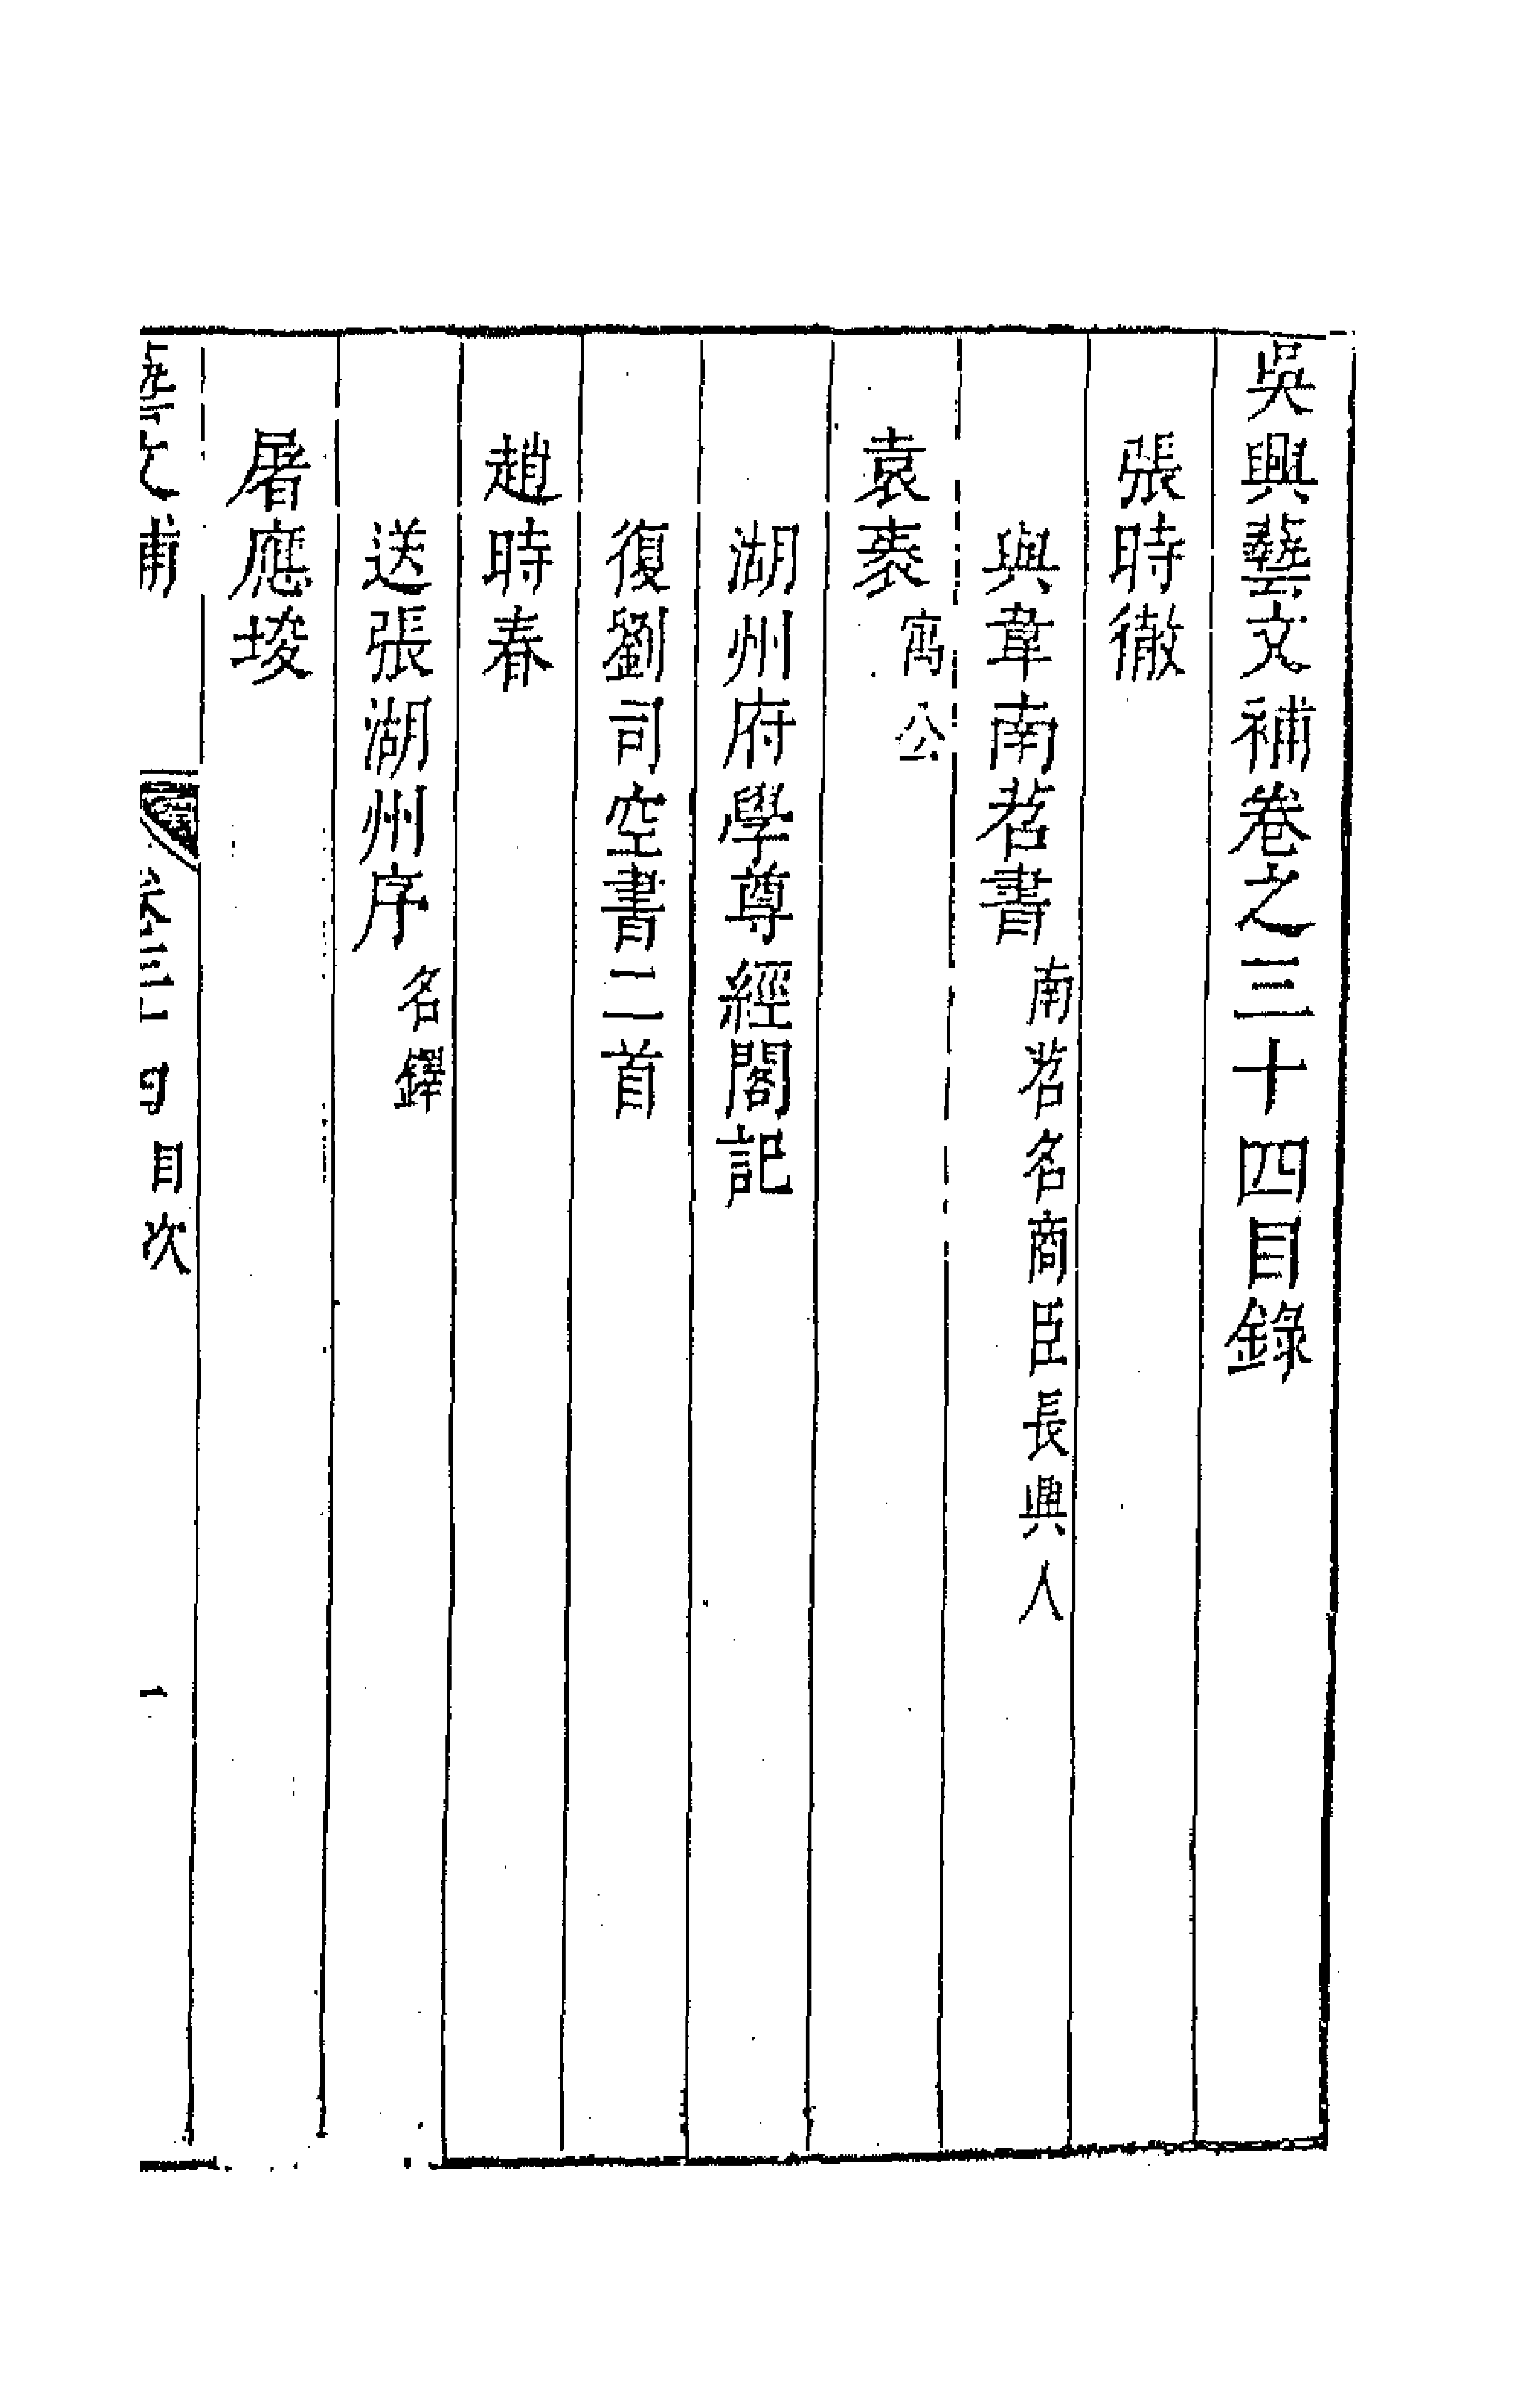 吳興藝文補卷之三十四目錄
張時徹
與韋南苕書 南苕名商臣長興人
袁袠 寓公
湖州府學尊經閣記
復劉司空書二首
趙時春
送張湖州序 名鐸
屠應埈
藝文補 卷三十四目次 一